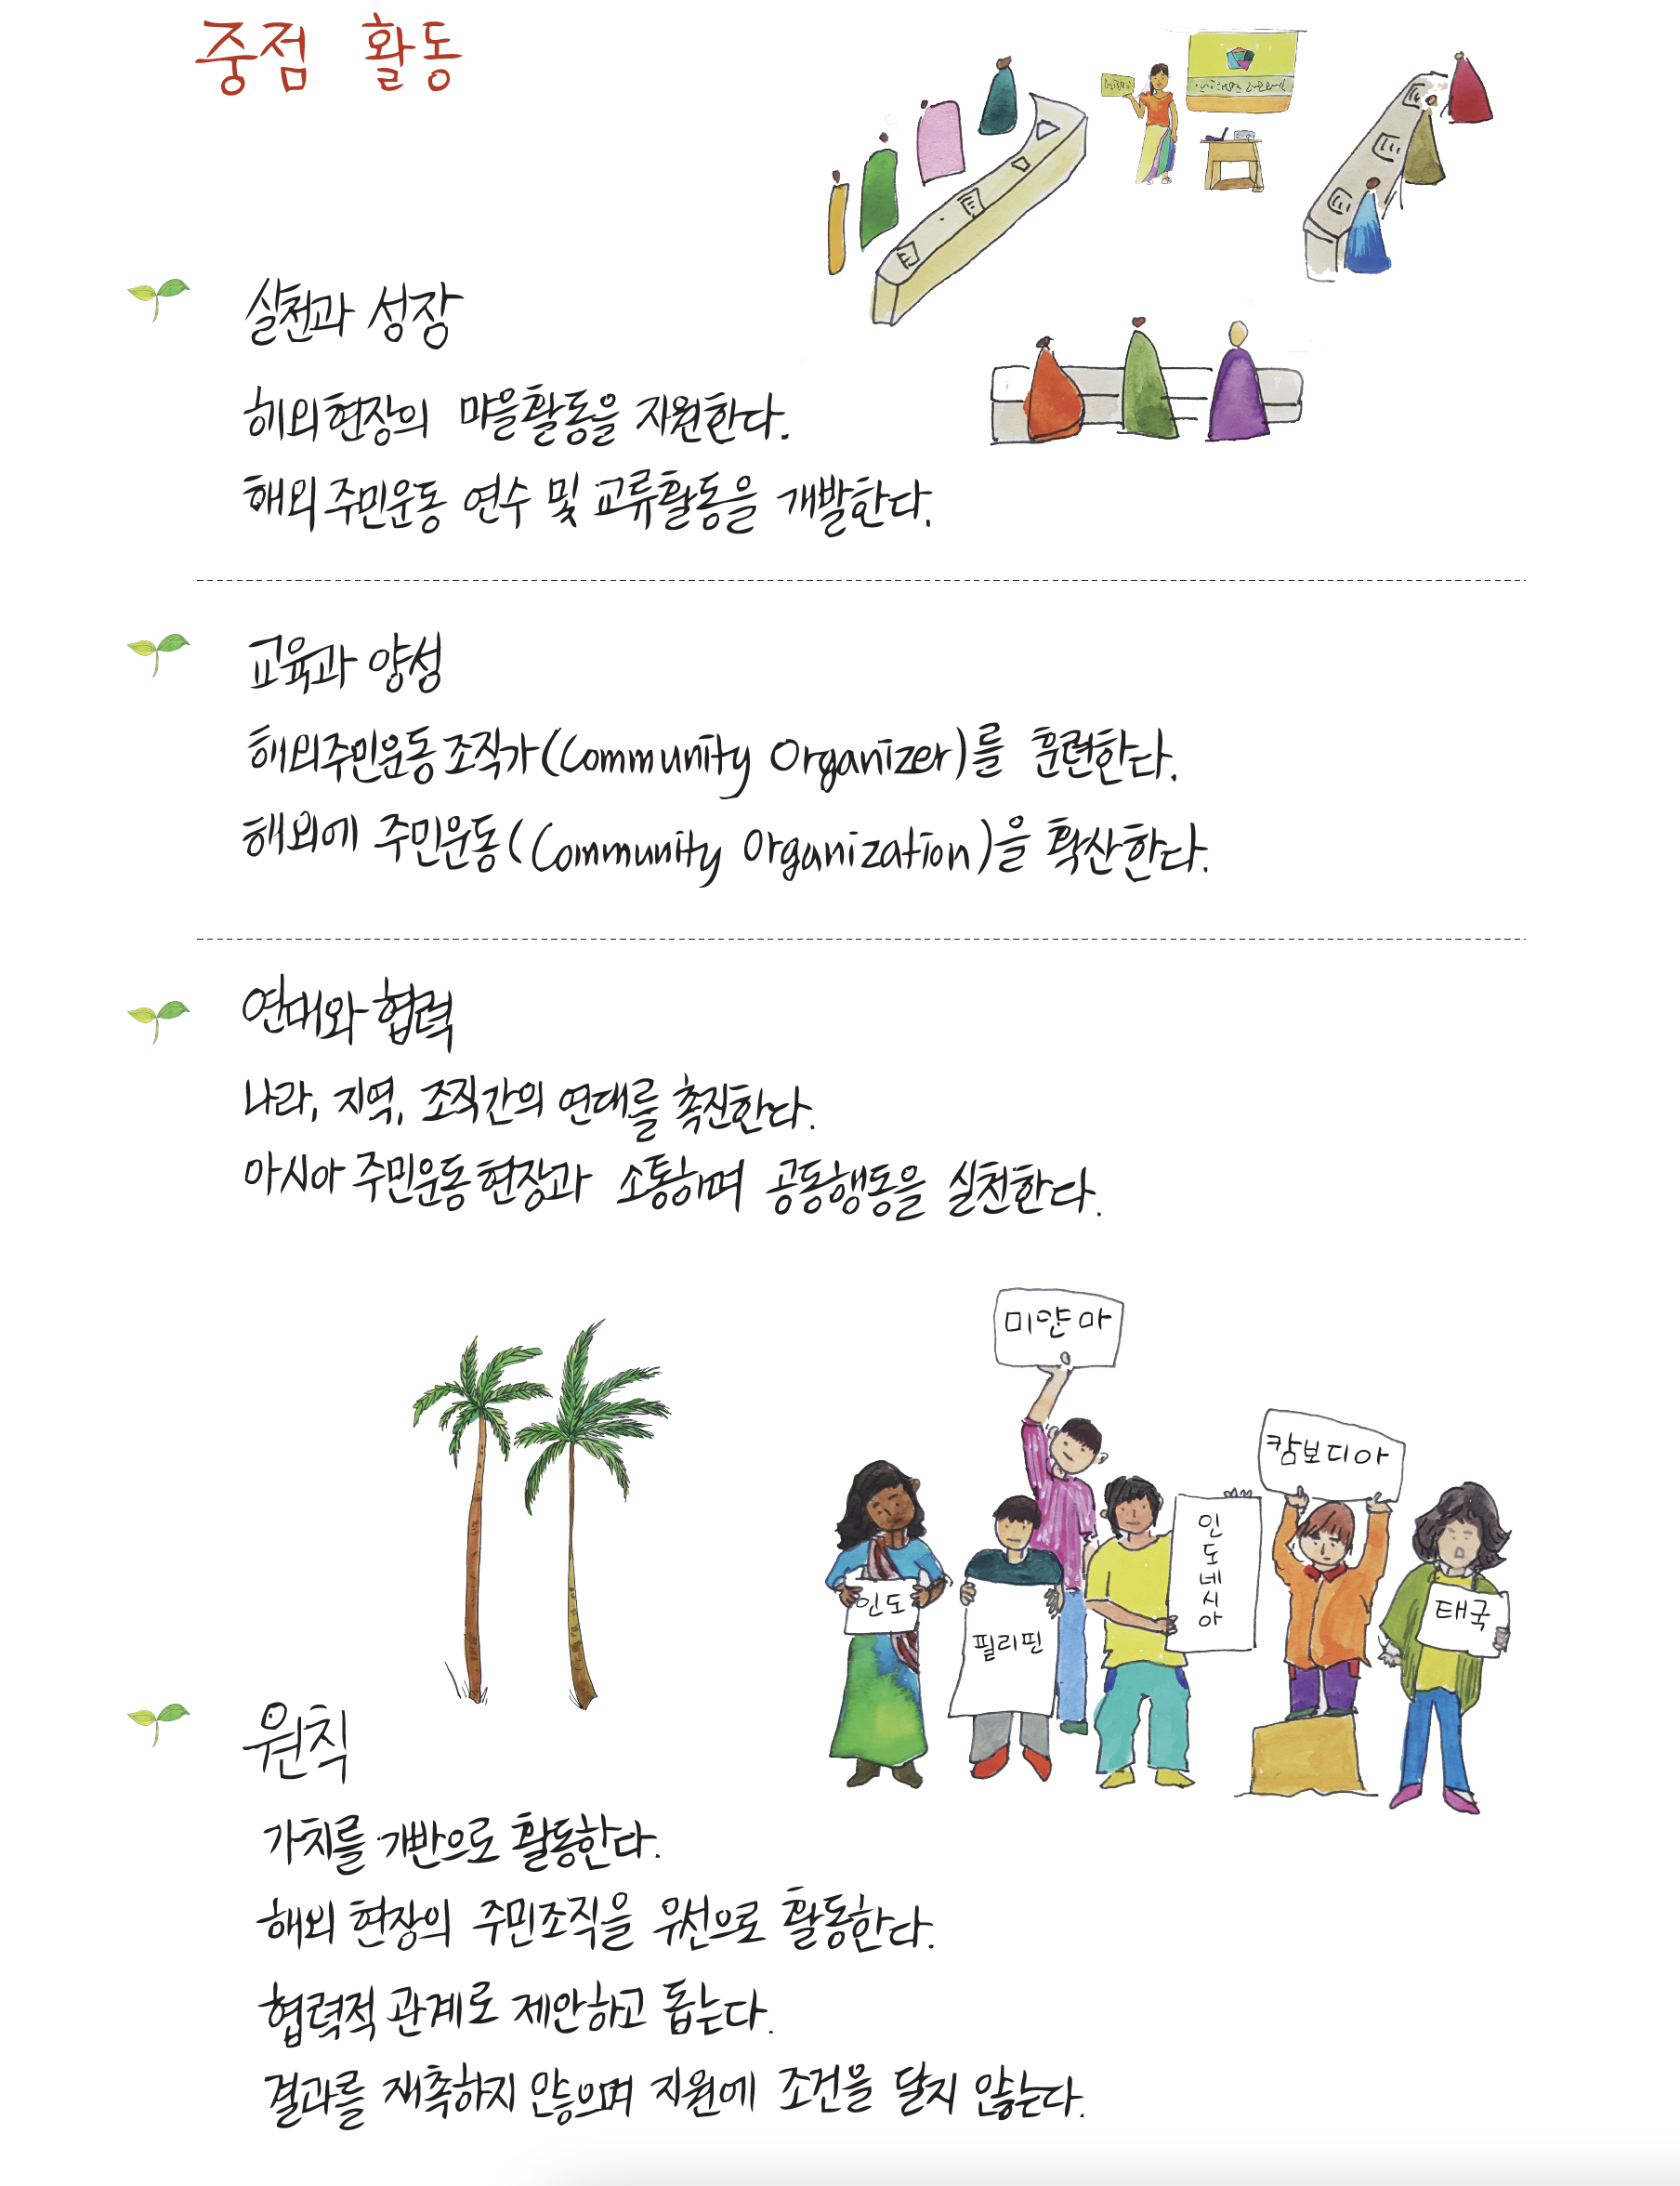 중점 활동
실천과 성장
해외현장의 마을활동을 지원한다.
해외 주민운동 연수 및 교류활동을 개발한다.
교육과 양성
해외주민운동 조직가(Community Organizer)를 훈련한다.
해외에 주민운동(Community Organization)을 확산한다.
연대와 협력
나라, 지역, 조직간의 연대를 촉진한다.
아시아 주민운동 현장과 소통하며 공동행동을 실천한다.
미얀마
캄보디아
인도네시아
인도
태국
필리핀
원칙
가치를 기반으로 활동한다.
해외 현장의 주민조직을 우선으로 활동한다.
협력적 관계로 제안하고 돕는다.
결과를 재촉하지 않으며 지원에 조건을 달지 않는다.